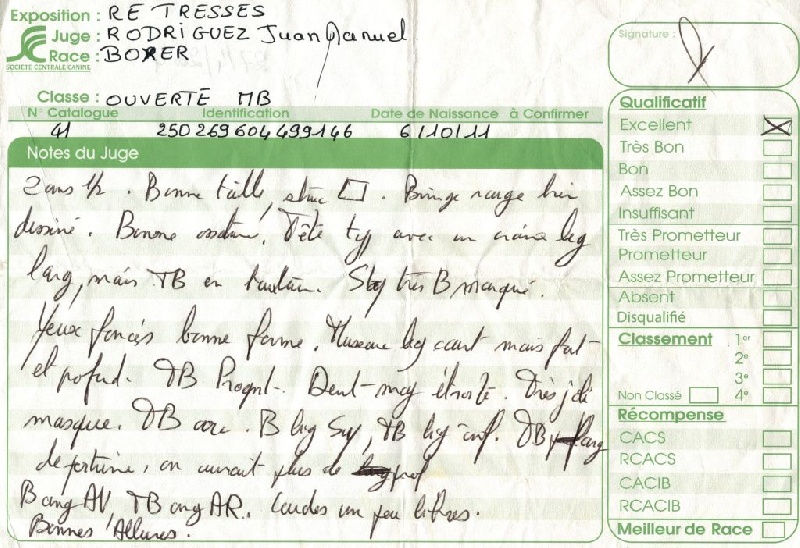 Exposition : RE TRESSES
Juge : RODRIGUEZ Juan Manuel
SOCIÉTÉ CENTRALE CANINE
Race : BOXER
Classe : OUVERTE MB
N° Catalogue Identification Date de Naissance à Confirmer
41 250 269 604 499 146 6/10/11
Notes du Juge
2 ans 1/2. Bonne taille, . Bringé rouge bien
dessiné. Bonne ossature. Tête typ avec un crâne leg
larg, mais TB en hauteur. Stop très B marqué.
Yeux foncés bonne forme. Museau leg court mais fort
et profond. TB Prognt. Dent-maj étroite. Très joli
masque. TB cou. B lig Sup, TB lig inf. TB larg
de poitrine, on aurait plus de prof
B ang AV, TB ang AR. Coudes un peu libres.
Bonnes Allures.
Signature :
Qualificatif
Excellent
Très Bon
Bon
Assez Bon
Insuffisant
Très Prometteur
Prometteur
Assez Prometteur
Absent
Disqualifié
Classement 1er
2e
3e
Non Classé 4e
Récompense
CACS
RCACS
CACIB
RCACIB
Meilleur de Race